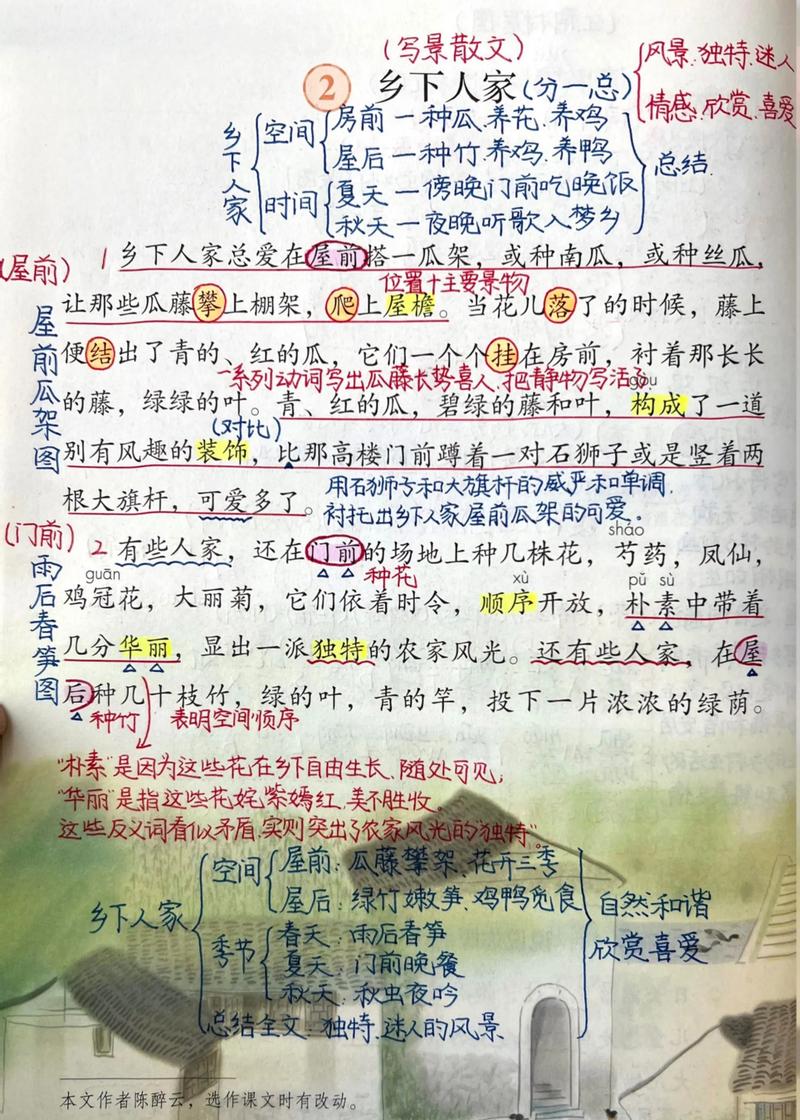 (写景散文)
风景:独特、迷人
2 乡下人家(分一总)
情感:欣赏、喜爱
乡下人家
空间
房前一种瓜、养花、养鸡
屋后一种竹、养鸡、养鸭
时间
夏天一傍晚门前吃晚饭
秋天一夜晚听歌入梦乡
总结.
(屋前) 1 乡下人家总爱在屋前搭一瓜架，或种南瓜，或种丝瓜，
位置十主要景物
让那些瓜藤攀上棚架，爬上屋檐。当花儿落了的时候，藤上
屋前瓜架图
便结出了青的、红的瓜，它们一个个挂在房前，衬着那长长
一系列动词写出瓜藤长势喜人、把静物写活了
gòu
的藤，绿绿的叶。青、红的瓜，碧绿的藤和叶，构成了一道
(对比)
别有风趣的装饰，比那高楼门前蹲着一对石狮子或是竖着两
根大旗杆，可爱多了。
用石狮子和大旗杆的威严和单调.
衬托出乡下人家屋前瓜架的可爱。
sháo
(门前) 2 有些人家，还在门前的场地上种几株花，芍药，凤仙，
雨后春笋图
种花
guān xù pǔ sù
鸡冠花，大丽菊，它们依着时令，顺序开放，朴素中带着
几分华丽，显出一派独特的农家风光。还有些人家，在屋
后种几十枝竹，绿的叶，青的竿，投下一片浓浓的绿荫。
种竹 表明空间顺序
"朴素"是因为这些花在乡下自由生长、随处可见;
"华丽"是指这些花姹紫嫣红、美不胜收。
这些反义词看似矛盾,实则突出了农家风光的"独特"。
乡下人家
空间
屋前:瓜藤攀架、花开三季
屋后:绿竹嫩笋、鸡鸭觅食
季节
春天:雨后春笋
夏天:门前晚餐
秋天:秋虫夜吟
总结全文:独特、迷人的风景
自然和谐
欣赏喜爱
本文作者陈醉云，选作课文时有改动。